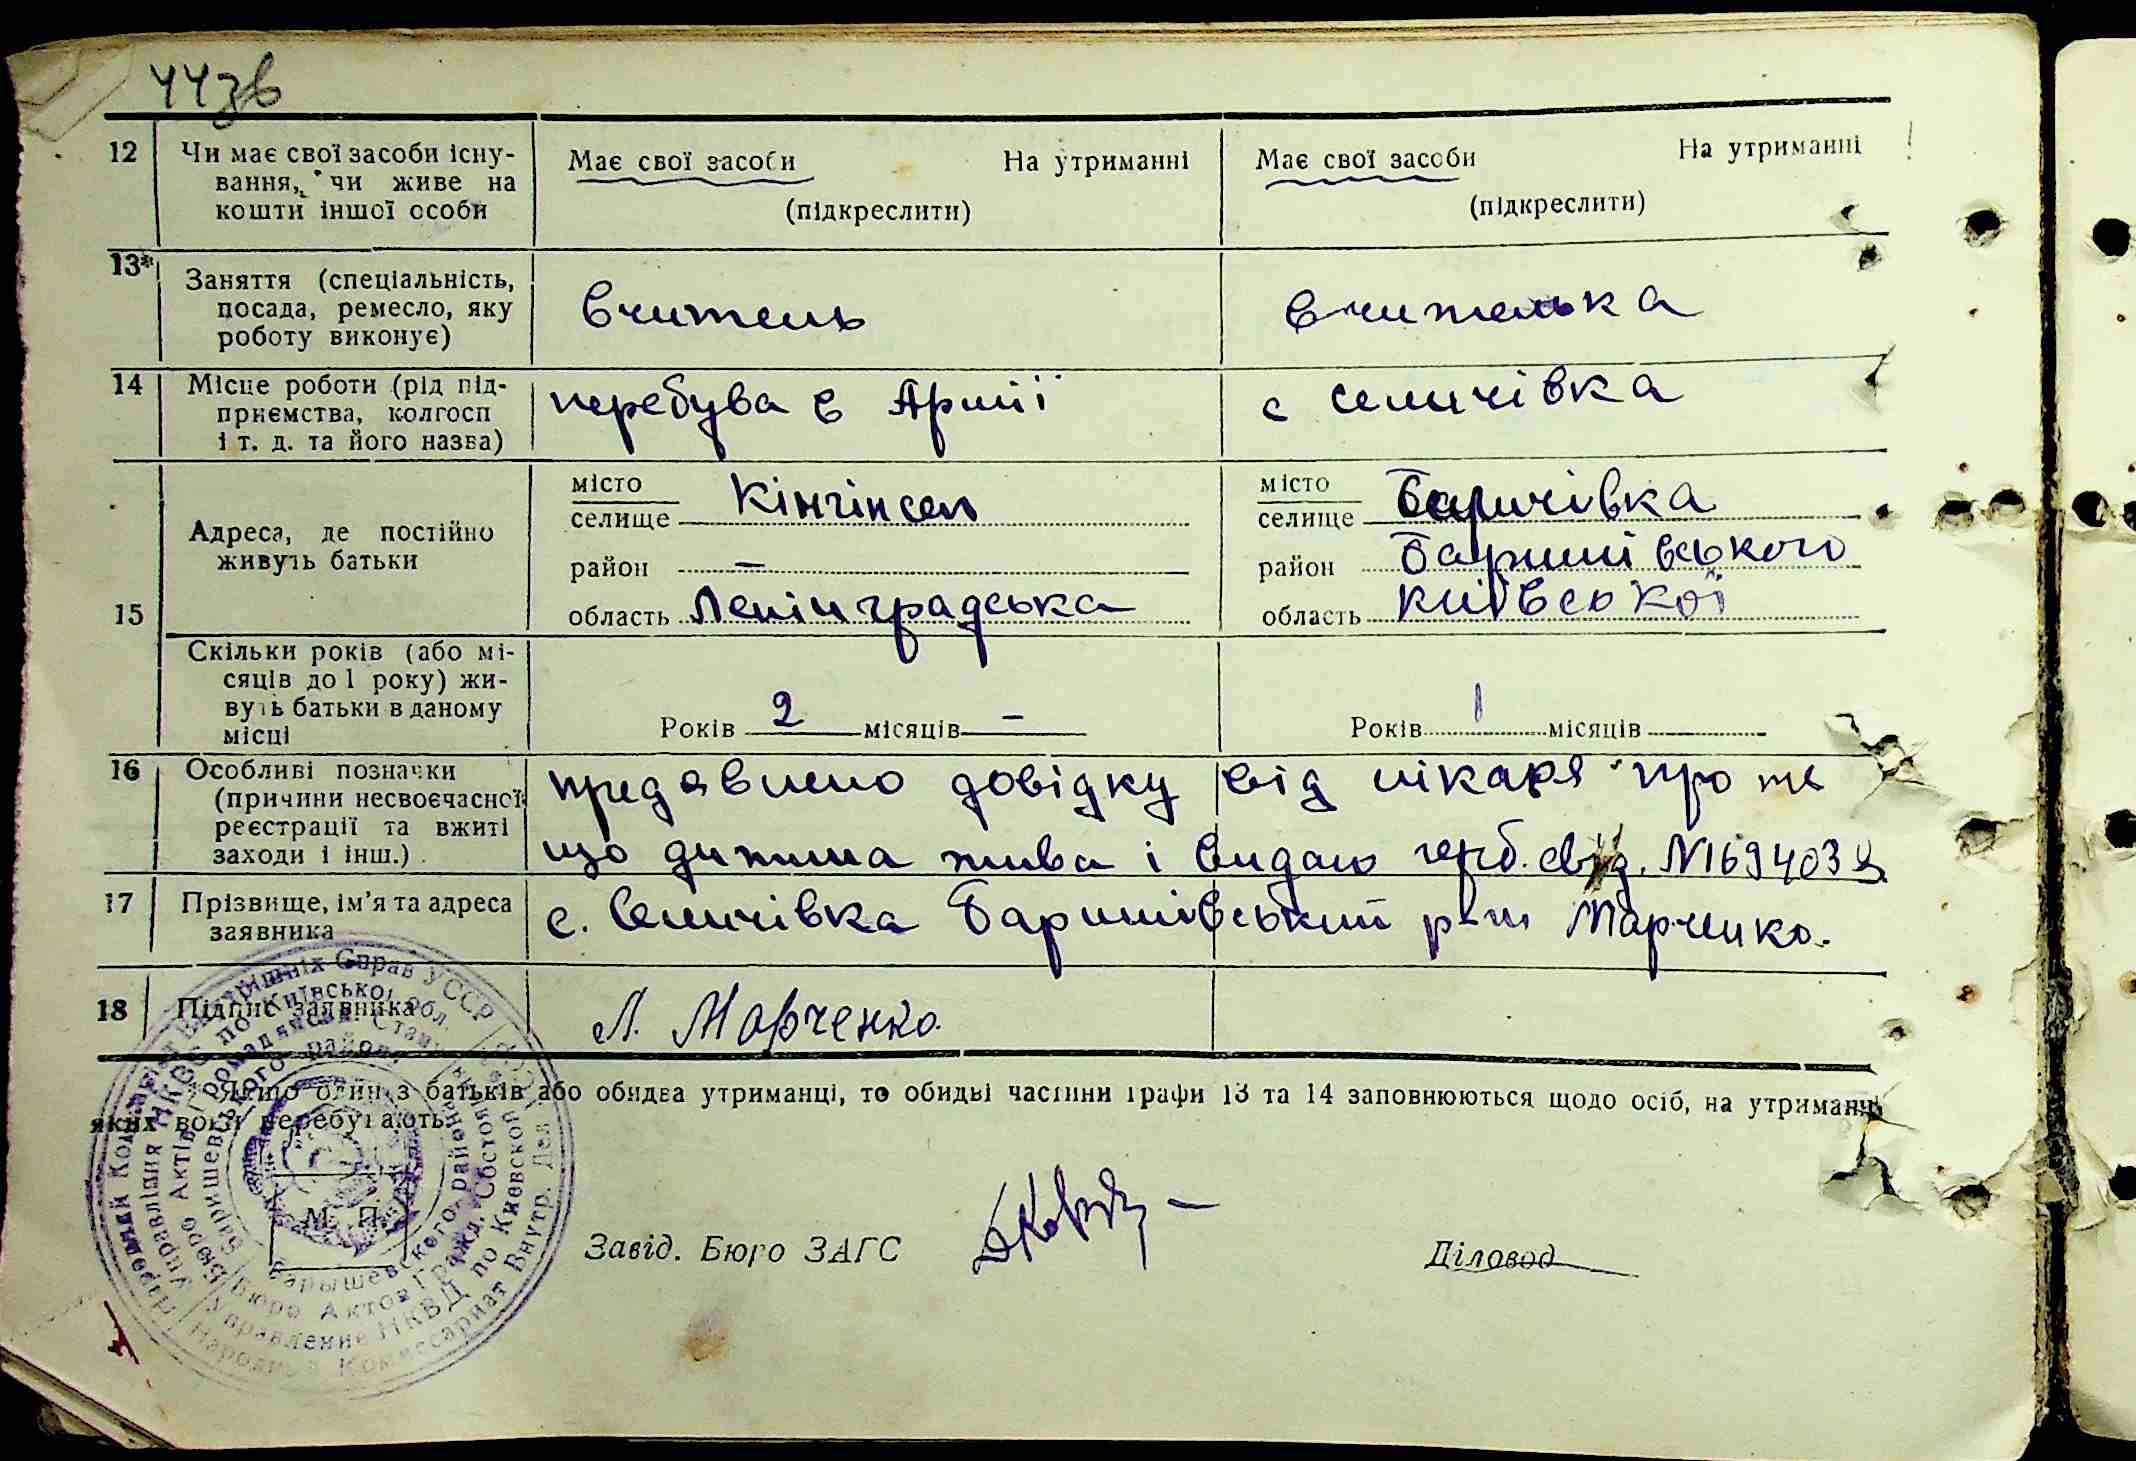 44зв
12 Чи має свої засоби існу-
вання, чи живе на
кошти іншої особи
Має свої засоби На утриманні
(підкреслити)
Має свої засоби На утриманні
(підкреслити)
13* Заняття (спеціальність,
посада, ремесло, яку
роботу виконує)
вчитель
вчителька
14 Місце роботи (рід під-
приємства, колгосп
і т. д. та його назва)
перебува в Армії
с Селичівка
15
Адреса, де постійно
живуть батьки
місто
селище Кінгінсеп
район –
область Ленінградська
місто
селище Баричівка
район Баришівського
область Київської
Скільки років (або мі-
сяців до 1 року) жи-
вуть батьки в даному
місці
Років 2 місяців –
Років 1 місяців
16 Особливі позначки
(причини несвоєчасної
реєстрації та вжиті
заходи і інш.)
предявлено довідку від лікаря про те
що дитина жива і видано герб. свід. №
17 Прізвище, ім'я та адреса
заявника
с. Селичівка Баришівський р-н Марченко.
18 Підпис заявника
Л. Марченко.
* Якщо один з батьків або обидва утриманці, то обидві частини графи 13 та 14 заповнюються щодо осіб, на утриманні
яких вони перебувають.
М. П.
Завід. Бюро ЗАГС
Діловод
Народний Комісаріат Внутрішніх Справ УССР
Управління НКВС по Київській обл.
Народный Комиссариат Внутр. Дел
Управление НКВД по Киевской